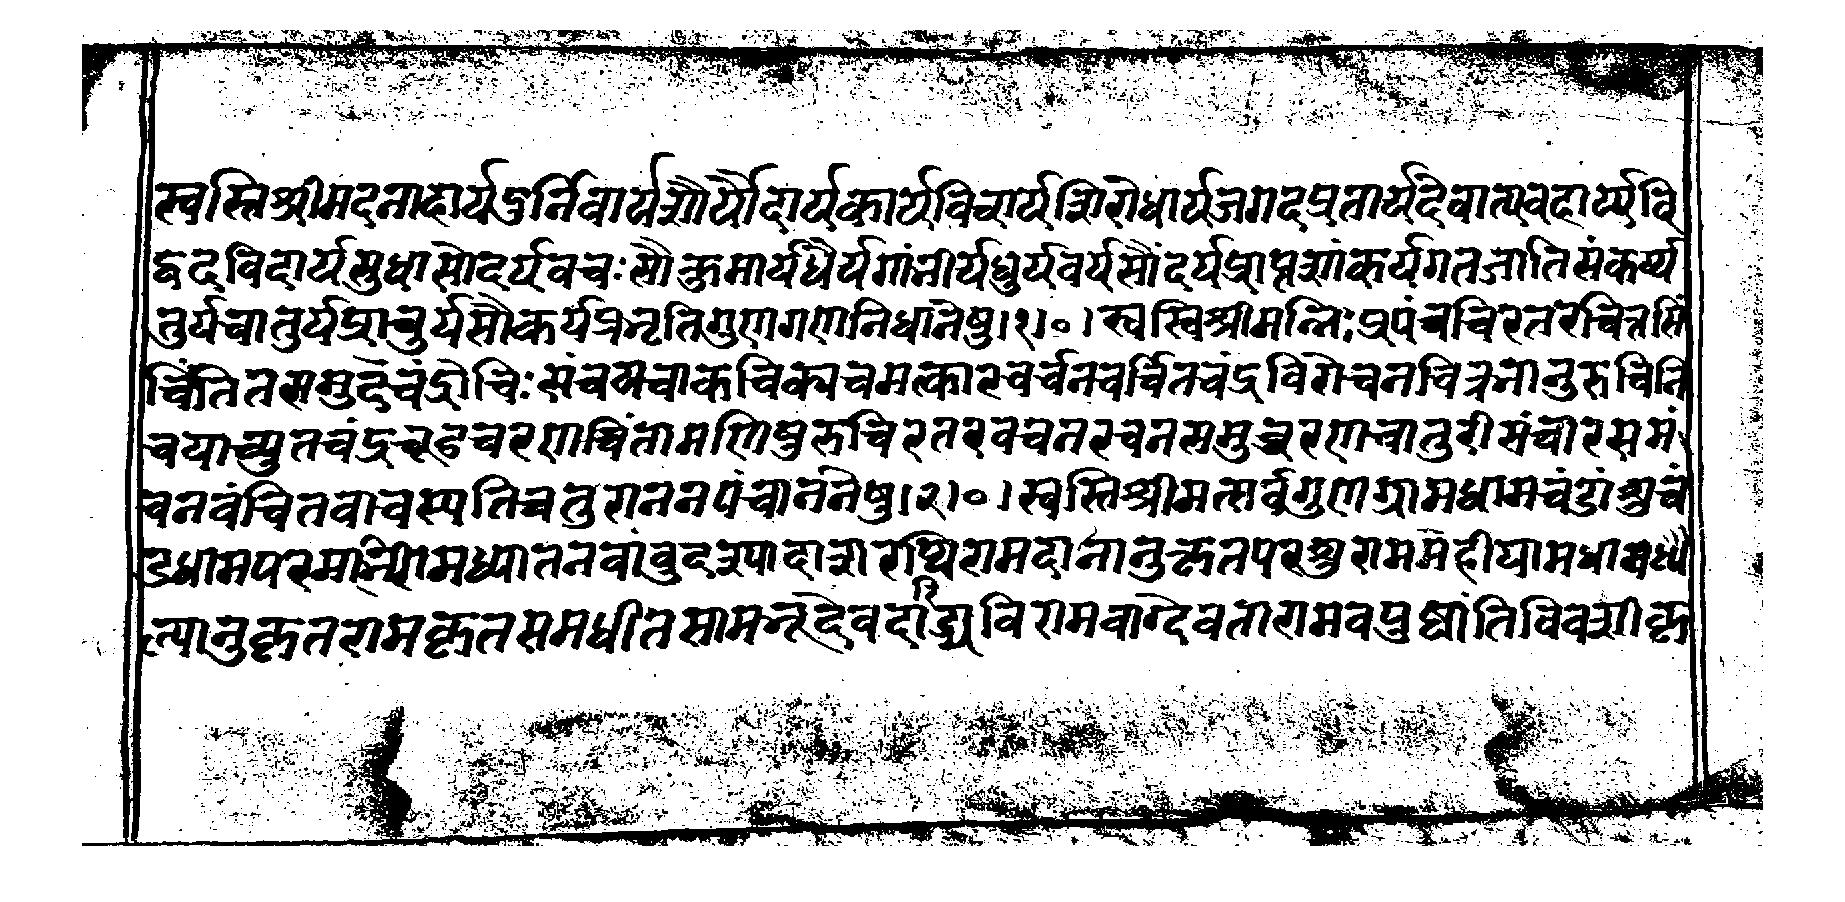 स्वस्तिश्रीमदनाहार्यदुर्निवार्यशौर्यौदार्यकार्यविचार्यशिरोधार्यजगदप्रतार्यदेवात्यवहार्य्यवि
द्वदविदार्यसुधासोदर्यवचःसौकुमार्यधैर्यगांभीर्यधुर्यवर्यसौंदर्यप्राप्तशांकर्यगतजातिसंकर्य्य
तुर्यचातुर्यप्राचुर्यसौकर्यप्रभृतिगुणगणनिधानेषु।१।०। स्वस्तिश्रीमन्निःप्रपंचचिरतरंचित्तसिं
चिंतितसमुदंचंद्रोचिःसंचयचाकचिक्यचमत्कारचर्चनचर्चितचंद्रविरोचनवित्रभानुरुचिनि
चयाच्युतचंद्रचूडचरणचिंतामणिषुरुचिरतरवचनरचनसमुच्चरणचातुरीसंचारसमं
चनवंचितवाचस्पतिचतुराननपंचाननेषु।२।०। स्वस्तिश्रीमत्सर्वगुणग्रामधामचंडांशुचं
डधामपरमाभिरामध्यातनवांबुदश्यादाशरथिरामदानानुकृतपरशुराममहीयामधाम
त्यानुकृतरामकृतसमधीतसामभूदेवदारिद्र्यविरामवाग्देवतारामवपुषांतिविवशीकृ